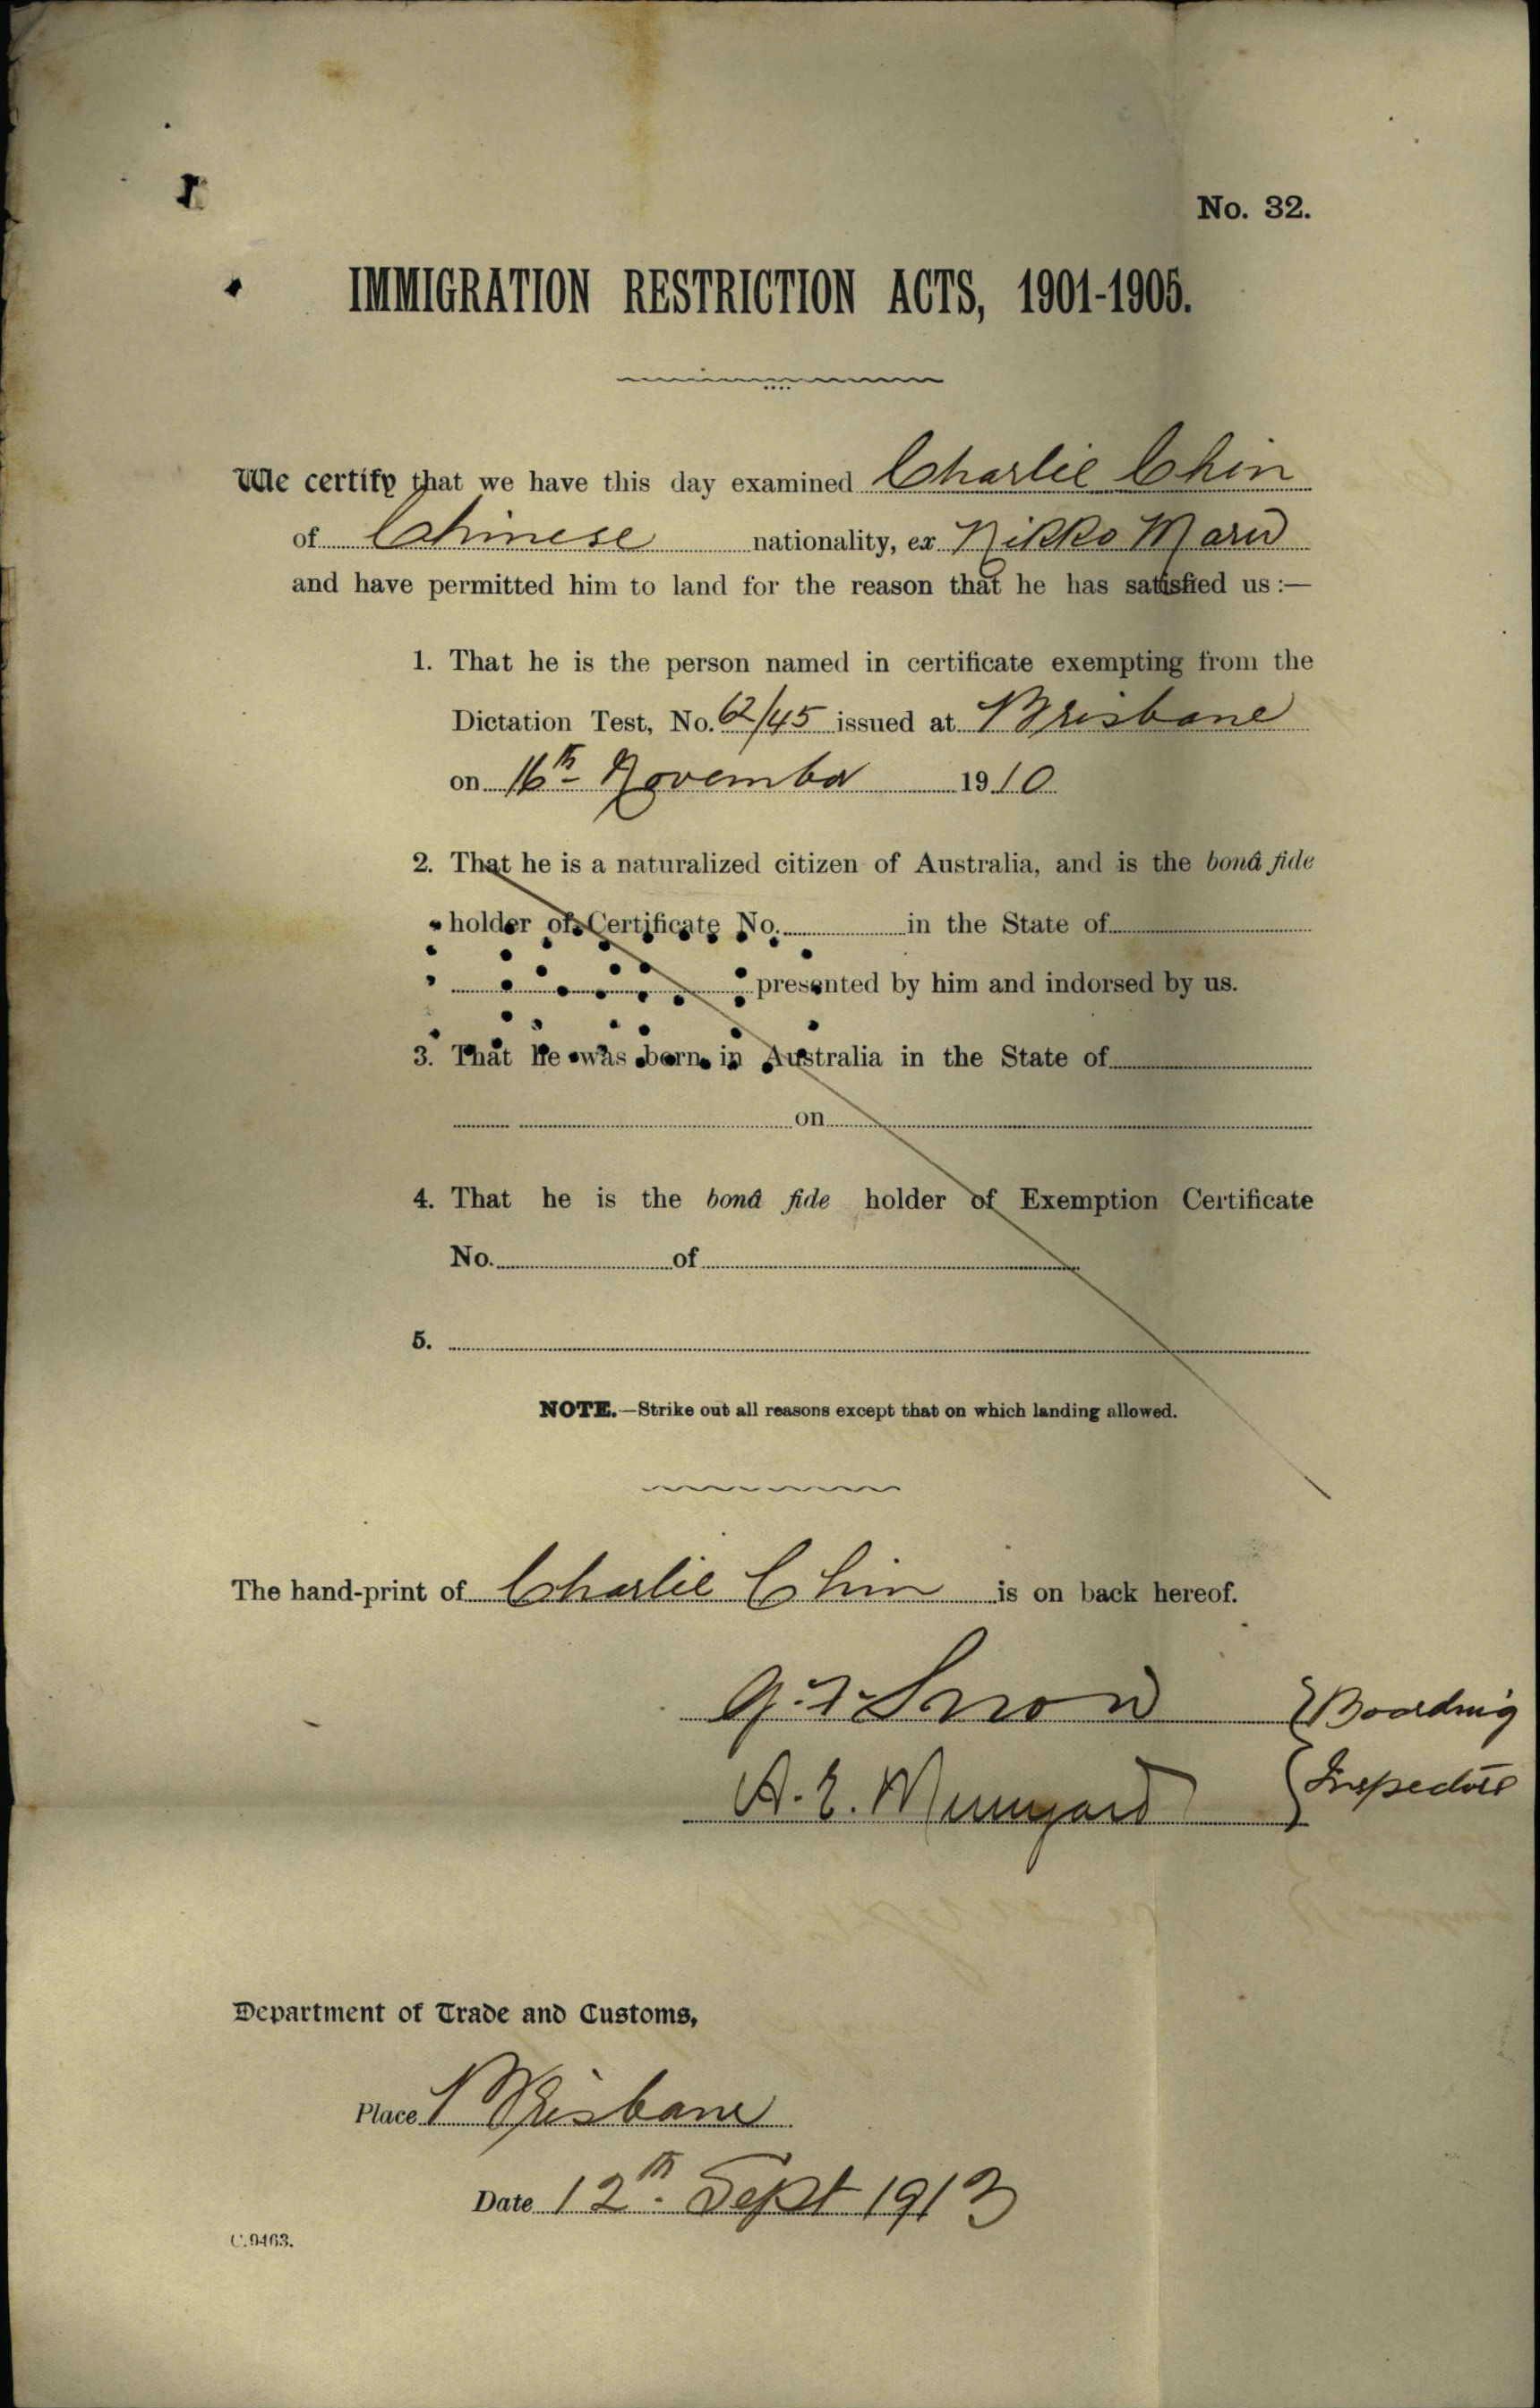 No. 32.
IMMIGRATION RESTRICTION ACTS, 1901-1905.
We certify that we have this day examined Charlie Chin
of Chinese nationality, ex Nikko Maru
and have permitted him to land for the reason that he has satisfied us :—
1. That he is the person named in certificate exempting from the
Dictation Test, No. 62/45 issued at Brisbane
on 16th November 1910
2. That he is a naturalized citizen of Australia, and is the bonâ fide
holder of Certificate No. in the State of
presented by him and indorsed by us.
3. That he was born in Australia in the State of
on
4. That he is the bonâ fide holder of Exemption Certificate
No. of
5.
NOTE.—Strike out all reasons except that on which landing allowed.
The hand-print of Charlie Chin is on back hereof.
Snow Boarding
A. E. Inspectors
Department of Trade and Customs,
Place Brisbane
Date 12th. Sept 1913
C.9463.